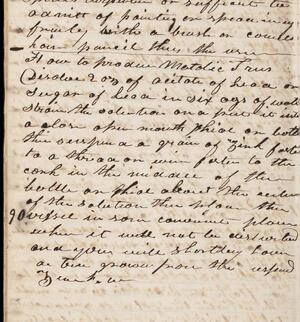 admitt of painting or specimen
finely with a brush or comles
hair pencil thus the urn
How to produce Metalic Trees
Disolve 2 ozs of acitate of lead or
sugar of lead in six ozs of water
strain the solution
a clear open mouth phial or bottle
this suspend a grain of Zink
to a thread or wire to the
cork in the middle of the
bottle or phial about the center
of the solution then place the
90 vessel in som convenient place
where it will not be disturbed
and you will shortly have
a tree grown from the suspend
Zink